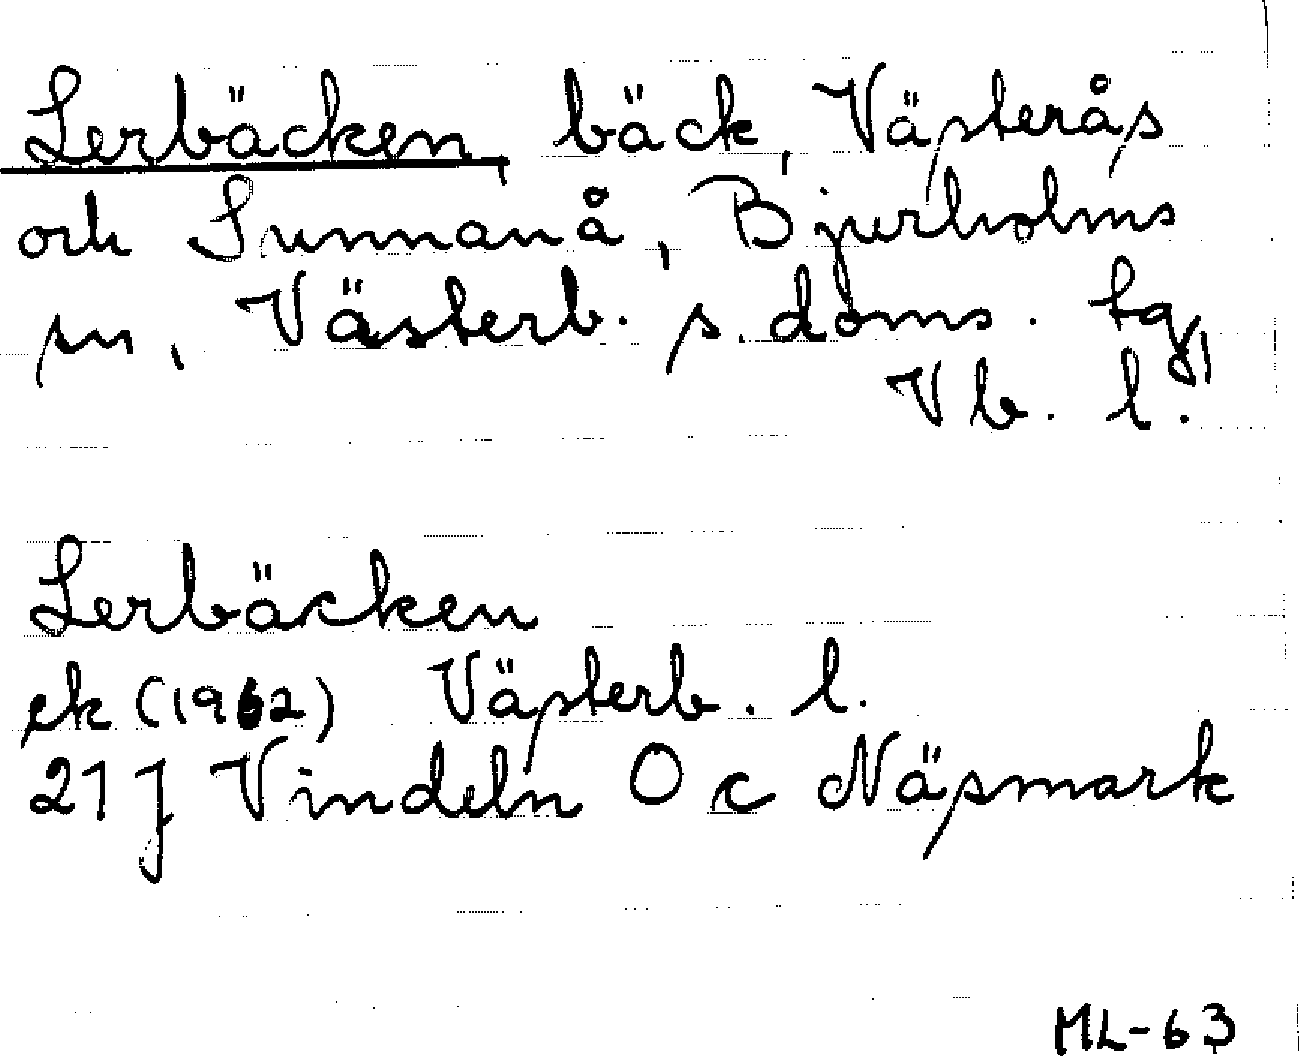 Lerbäcken, bäck, Västerås
och Sunnanå, Bjurholms
sn, Västerb. s. doms. tg,
Vb. l.
Lerbäcken
ek (1962) Västerb. l.
21 J Vindeln O c Näsmark
ML-63